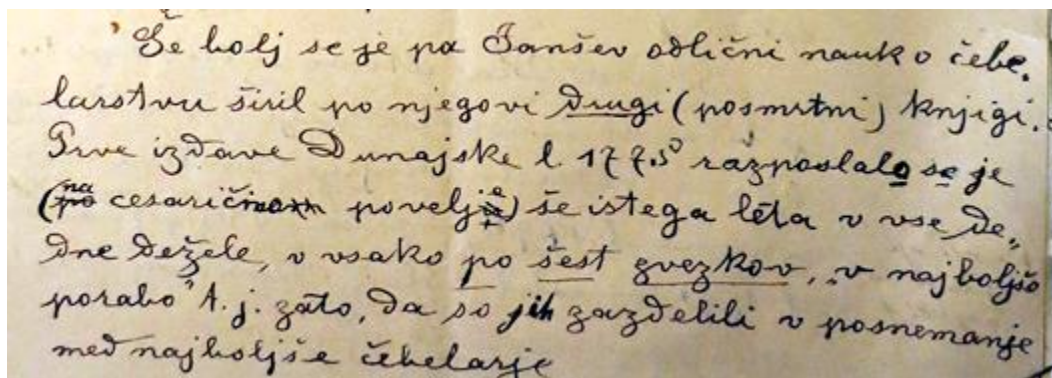 Še bolj se je pa Janšev odlični nauk o čebe-
larstvu širil po njegovi drugi (posmrtni) knjigi.
Prve izdave Dunajske l. 1775º razposlalo se je
(na cesaričin povelje) še istega lêta v vse de„
dne dežele, v vsako po šest zvezkov, „v najboljšo
porabo" t. j. zato, da so jih zazdelili v posnemanje
med najboljše čebelarje